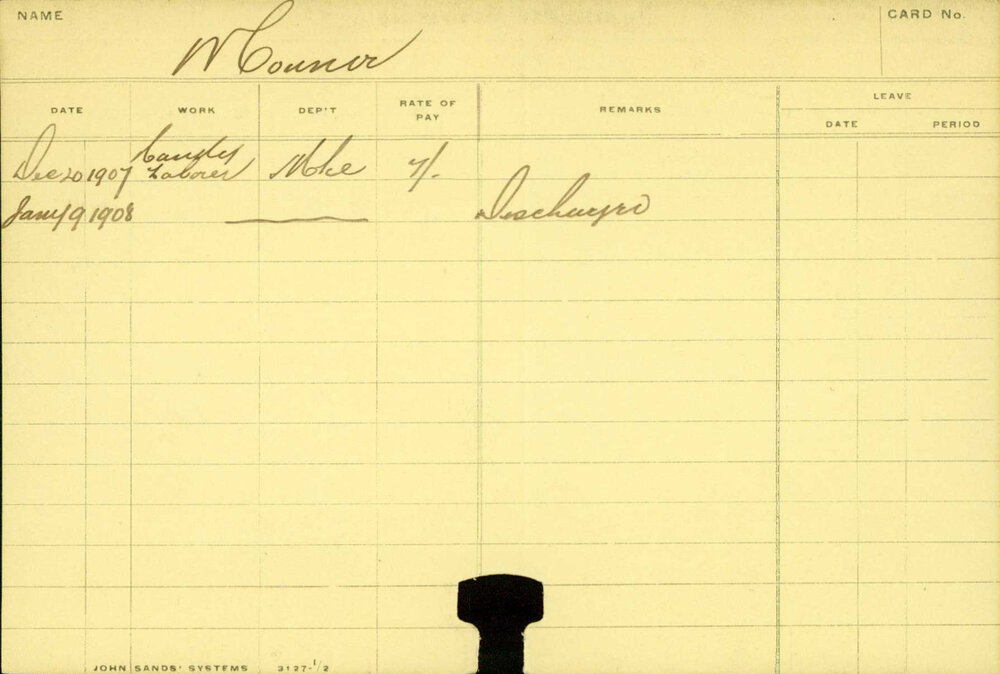 NAME
CARD No.
W Connor
DATE WORK DEP'T RATE OF PAY REMARKS LEAVE
DATE PERIOD
Casual
Dec 20 1907 Laborer 7/-
Jany 9 1908 Discharged
JOHN SANDS' SYSTEMS 3127-1/2